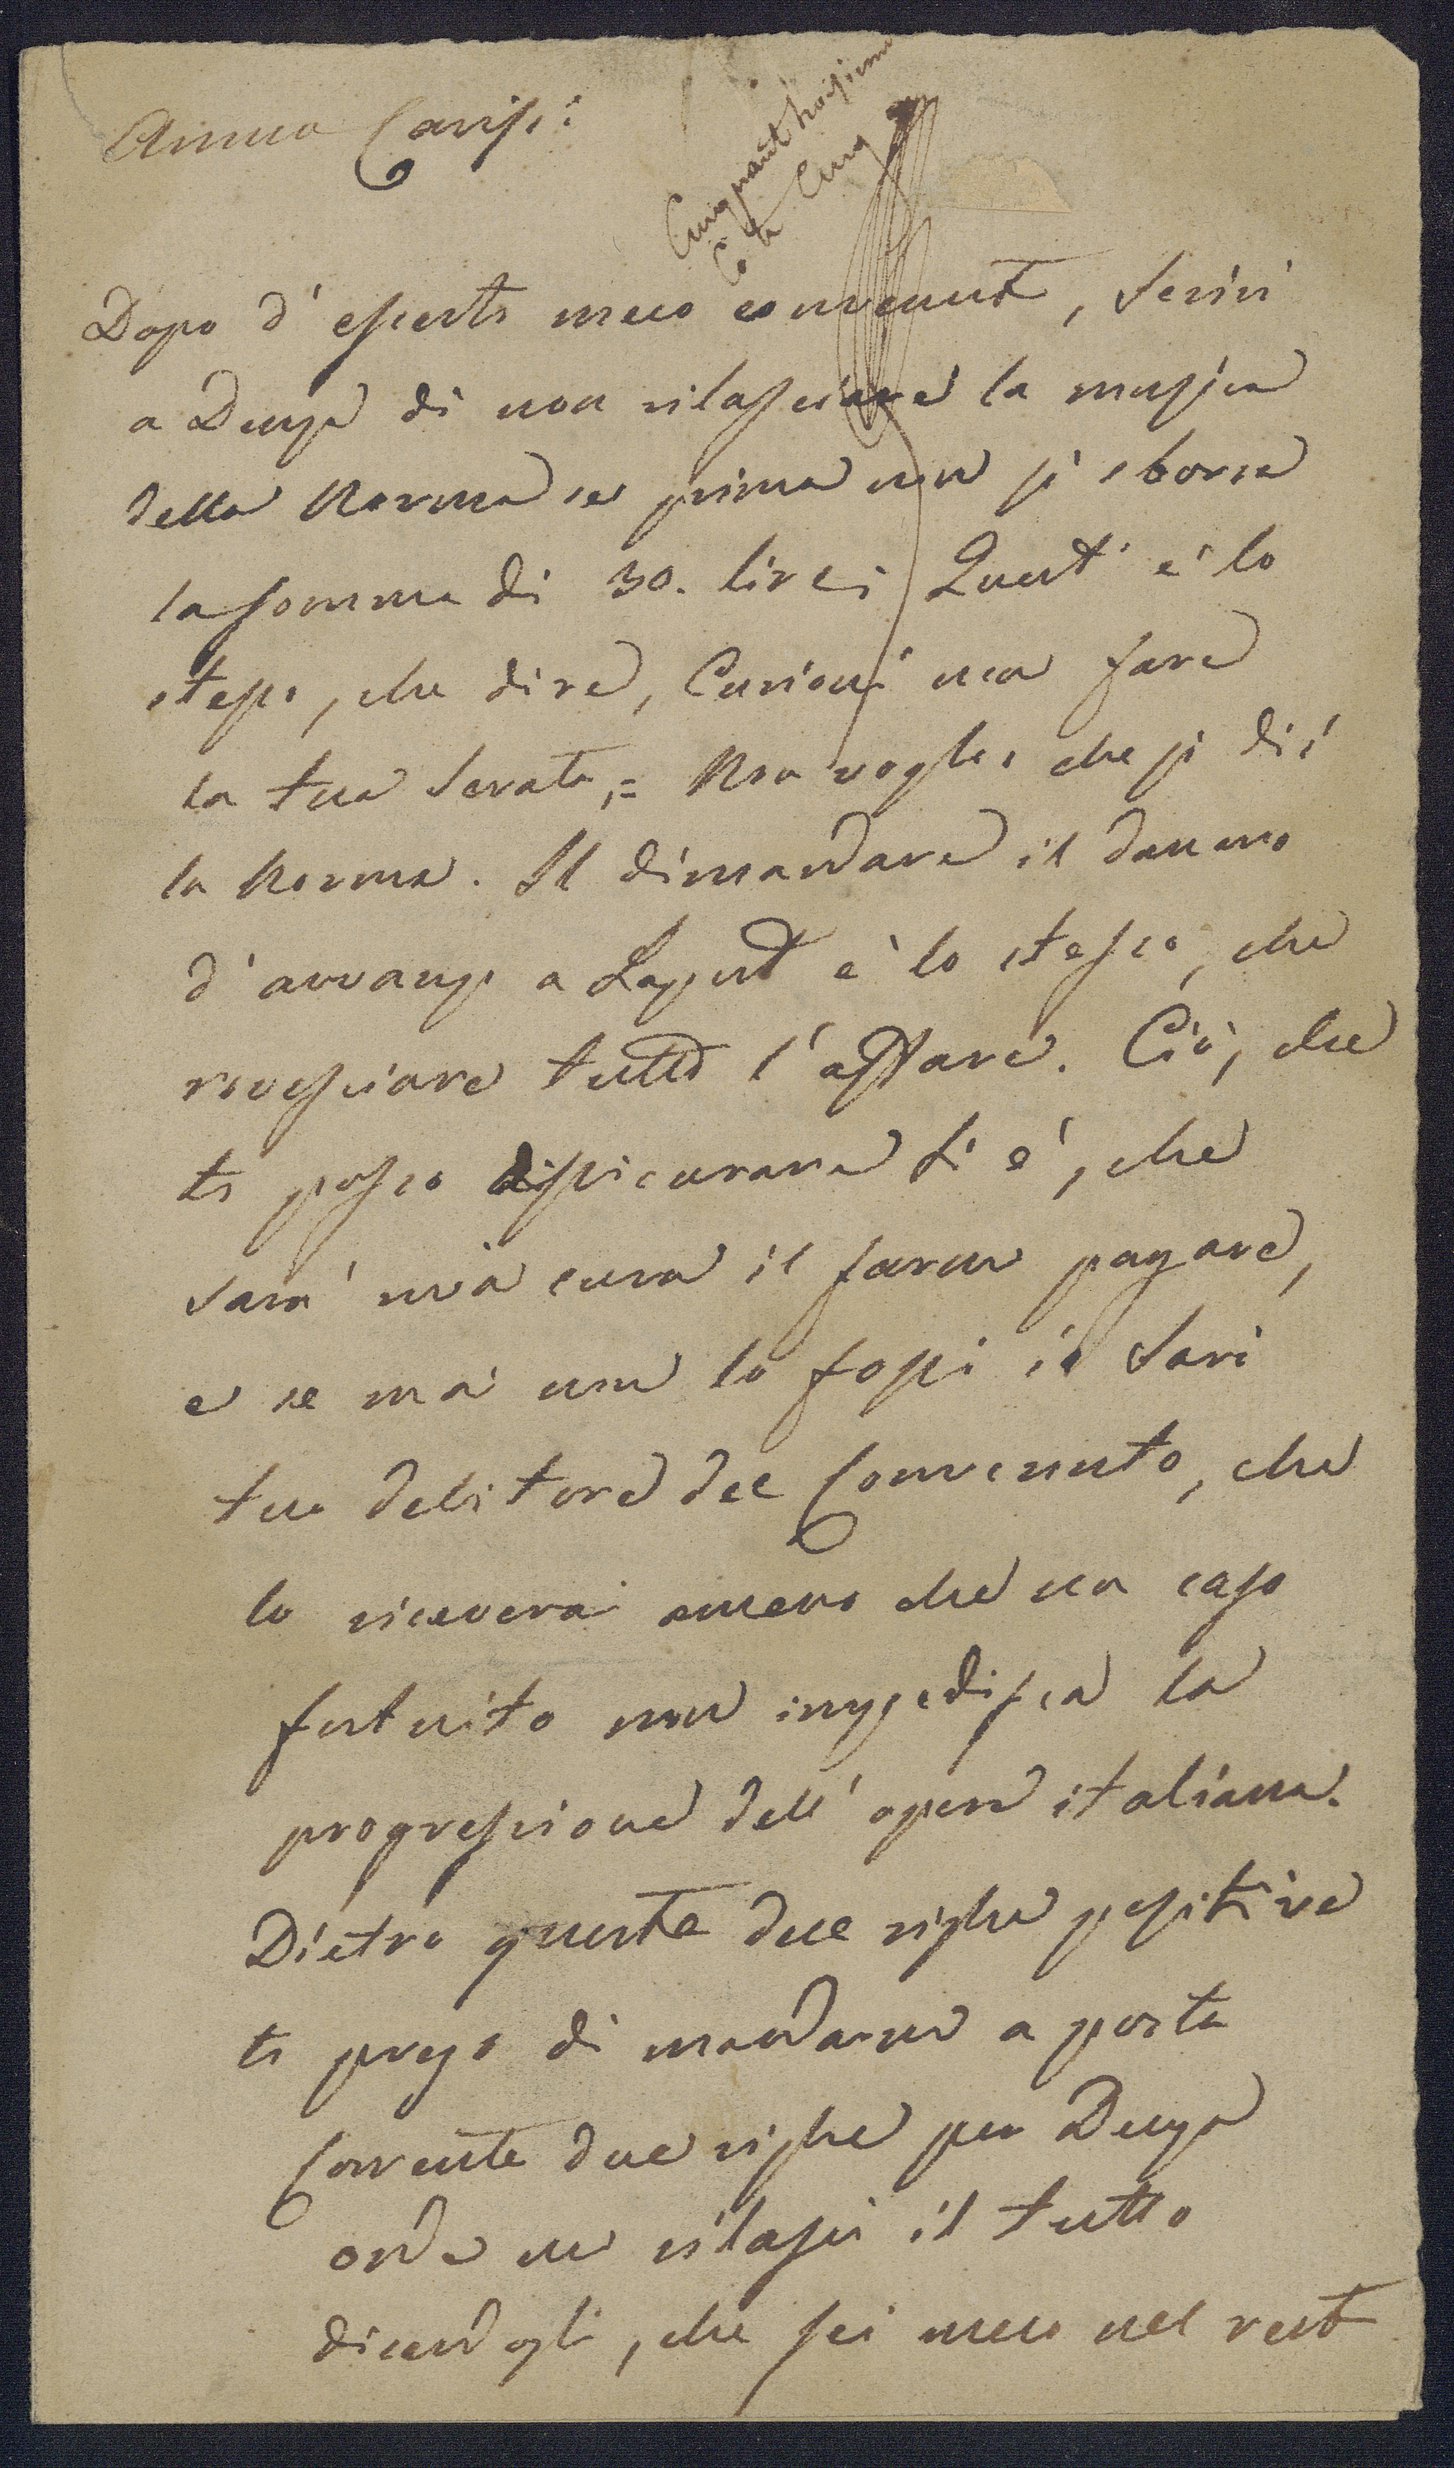 Amico Cariss:
Cinquanthuisieme
Cinq
Dopo d'esserti meco convenuto, scrivi
a Denza di non rilasciare la musica
della Norma se prima non si sborsa
la somma di 30. lire; Quest' è lo
stesso, che dire, Curioni non fare
la tua serata,= Non voglio che si dii
la Norma. Il dimandare il danaro
d'avvanzo a Laport è lo stesso, che
rovesciare tutto l'affare. Ciò, che
ti posso assicurare si è, che
sarà mia cura il farne pagare,
e se mai non lo fossi io sarò
tuo debitore del Convenuto, che
lo riceverai ameno che un caso
fortuito non impedisca la
progressione dell' opera italiana.
Dietro queste due righe positive
ti prego di mandarmi a posta
Corrente due righe per Denza
onde ne rilasci il tutto
dicendogli, che sei meco nel resto